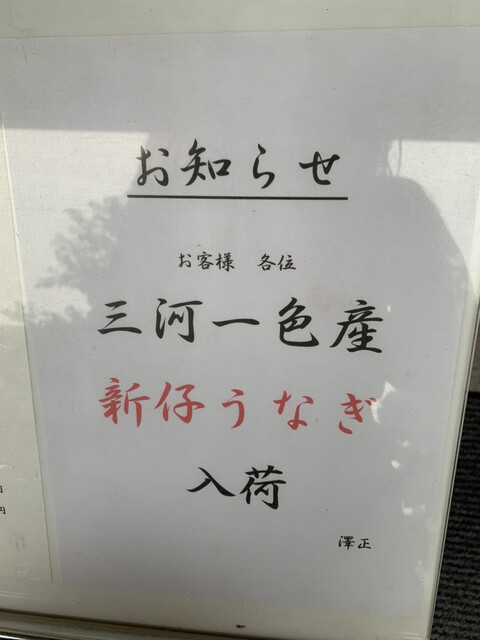 お知らせ
お客様　各位
三河一色産
新仔うなぎ
入荷
澤正
円
円